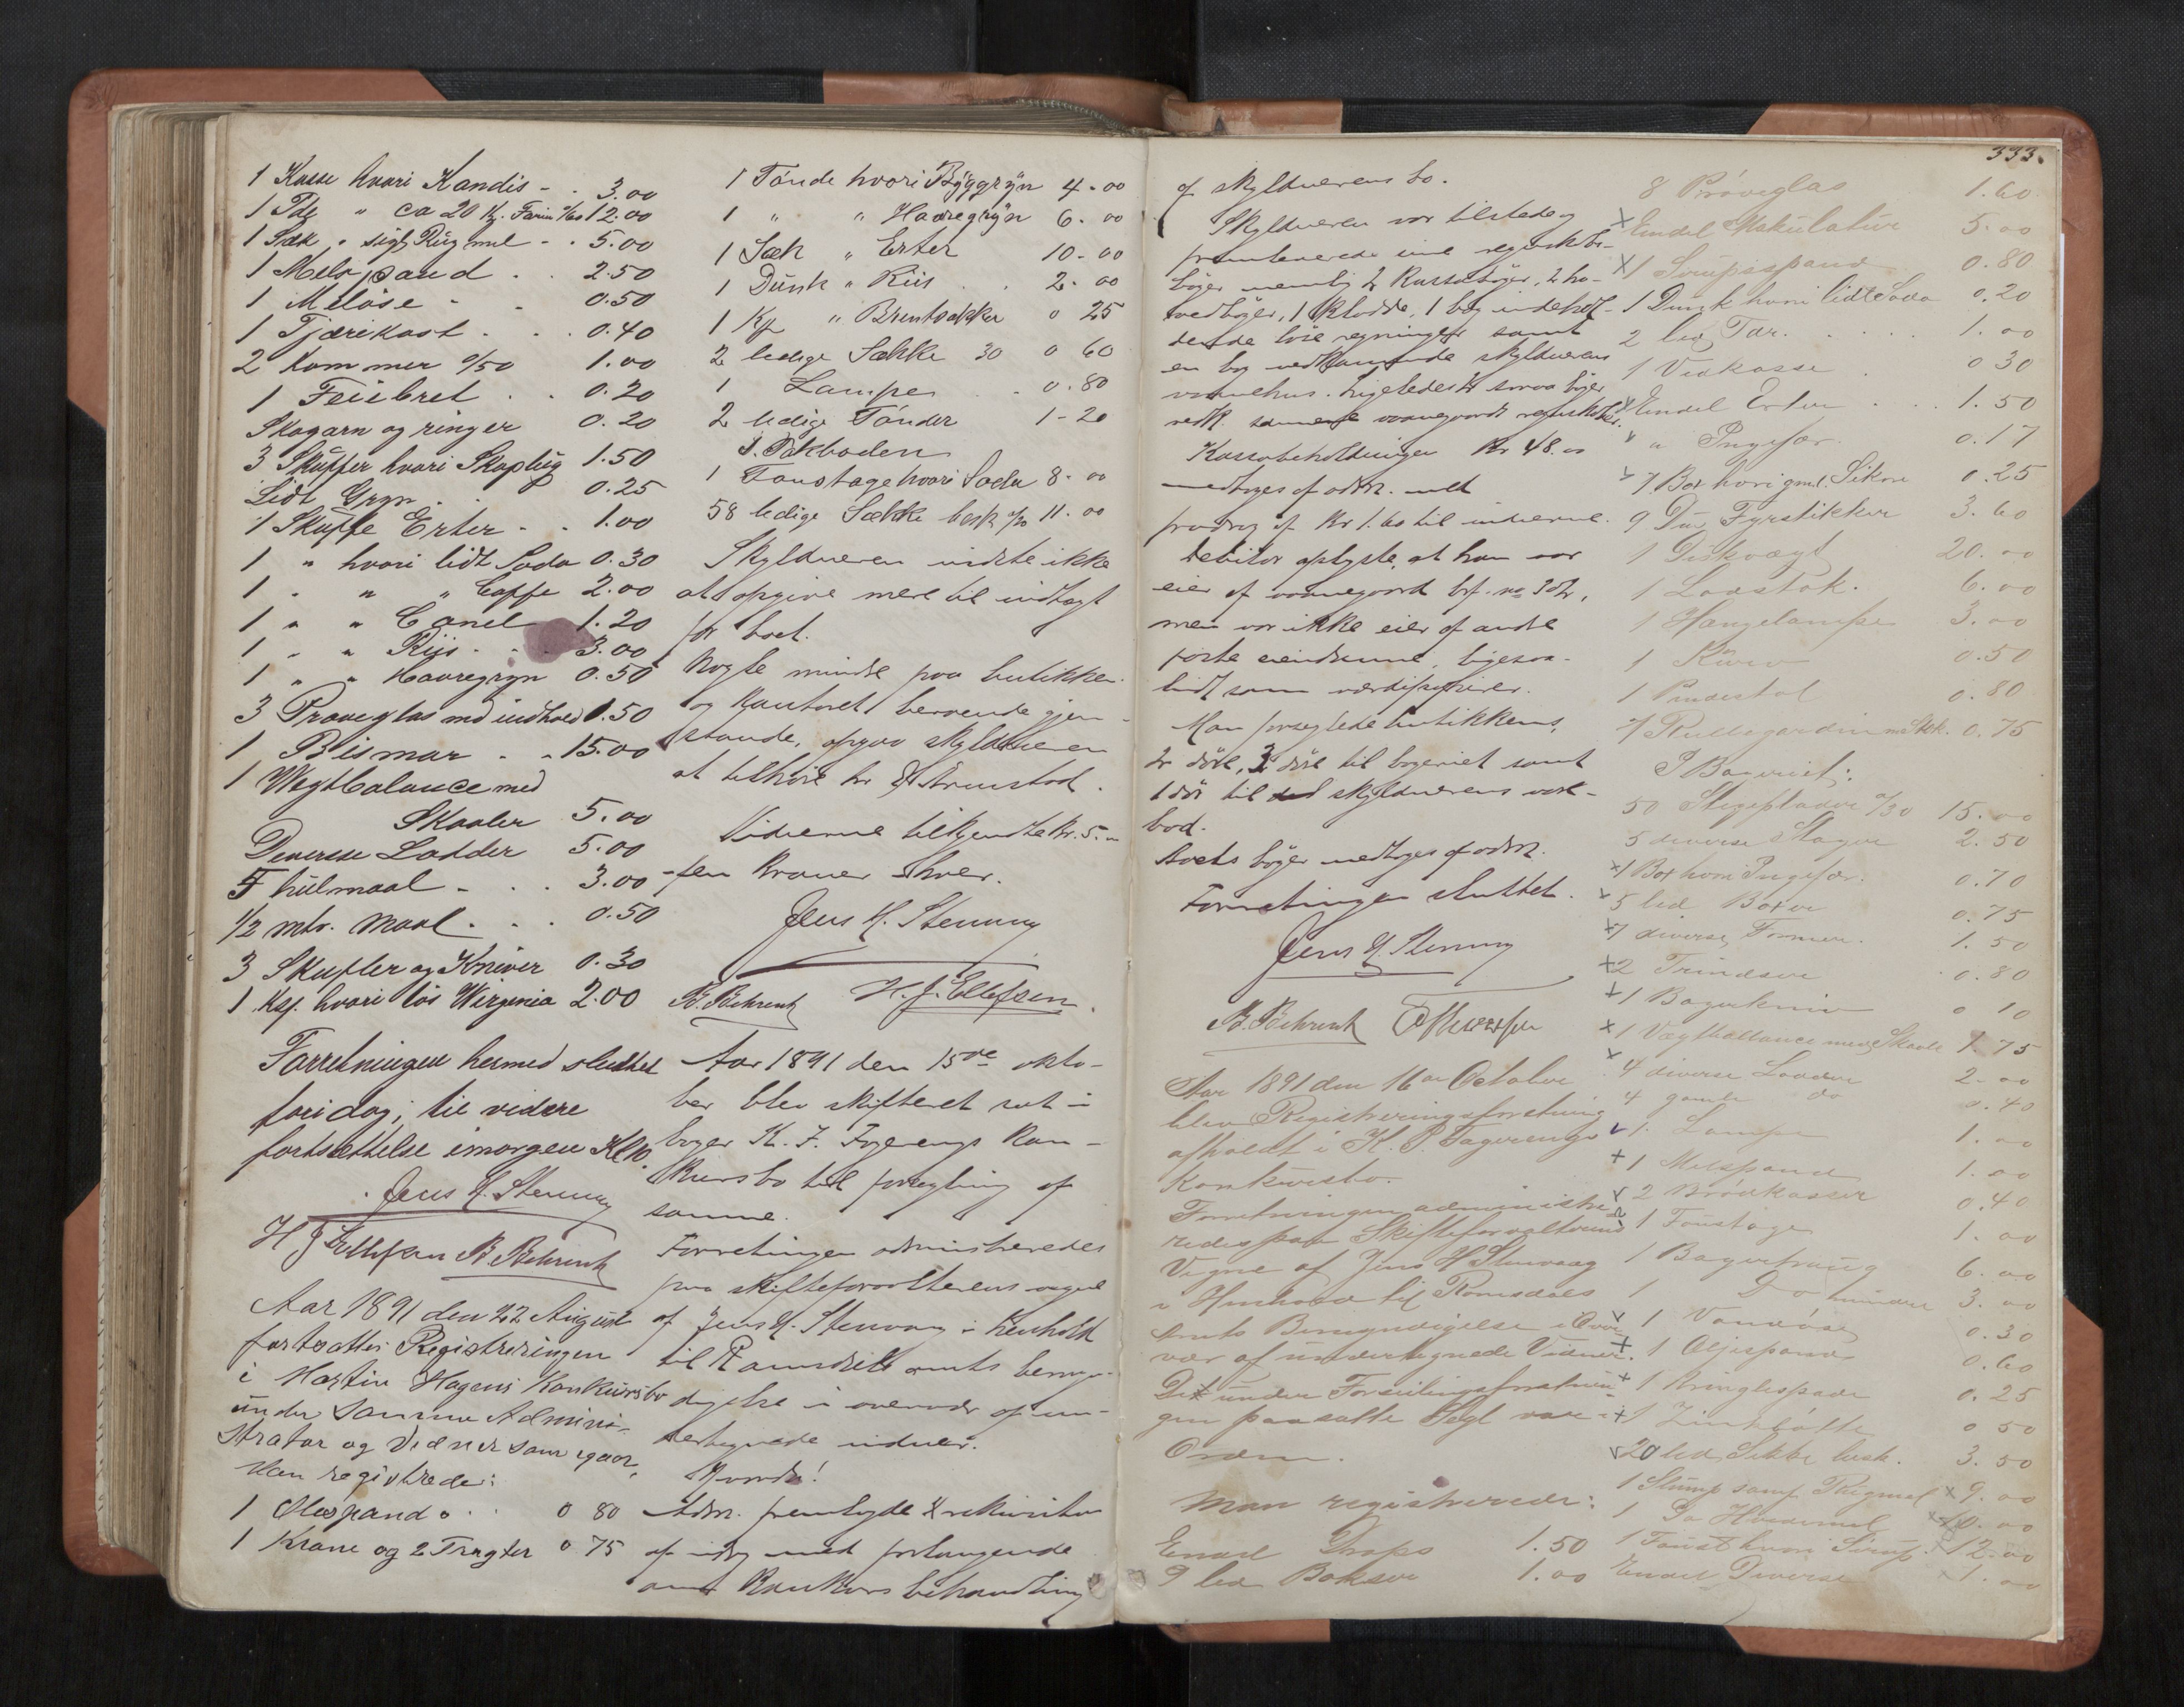 1 Kasse hvori Kandis - . 3.00
1 Tdr " ca 20 Kg. Farin 12.00
1 Sæk " sigt Rugmel - . 5.00
1 Melspand . . 2.50
1 Meløse - - 0.50
1 Tjærekost . . . 0.40
2 Kommer 0/50 1.00
1 Feiebret . . 0.20
Skogarn og ringer 0.20
3 Skuffer hvori Skoplug 1.50
Lidt Gryn . . 0.25
1 Skuffe Erter - . 1.00
1 " hvori lidt Soda 0.30
1 " " " Caffe 2.00
1 " " Canel 1.20
1 " " Riis - . . 3.00
1 " " Havregryn 0.50
3 Prøveglas med indhold 1.50
1 Bismar . - 15.00
1 Vegtbalance med
Skaaler 5.00
Deverse Lodder 5.00
5 hulmaal - . . 3.00
1/2 mtr. maal . . . 0.50
3 Skufler og Kniver 0.30
1 Ksj. hvori løs Wirginia 2.00
Forretningen hermed sluttet
for idag; til videre
fortsættelse imorgen Kl 10.
Jens H. Stenvaag
H J Ellefsen B. Behrentz
Aar 1891 den 22 August
fortsattes Registreringen
i Martin Hagens Konkursbo
under samme Admini-
strator og Vidner som igaar,
Man registrede:
1 Olespand . . 0 80
1 Krane og 2 Tragter 0 75
1 Tønde hvori Byggryn 4 - 00
1 " " Havregryn 6 - 00
1 Sæk " Erter 10 - 00
1 Dunk " Riis . . 2 - 00
1 Kp " Brentkakker 0 25
2 ledige Sække 30 0 60
1 Lampe . . 0.80
2 ledige Tønder 1 - 20
I Pakboden
1 Foustage hvori Soda 8 - 00
58 ledige Sække besk 11 - 00
Skyldneren vidste ikke
at opgive mere til indtægt
for boet.
Nogle mindre paa butikken
og Kontoret beroende gjen-
stande, opgav skyldneren
at tilhøre hr
Vidnerne tilkjendtes kr. 5.00
fem Kroner hver.
Jens H. Stenvaag
B. Behrentz H. J. Ellefsen.
Aar 1891 den 15de okto-
ber blev skifteret sat i
bager K. J. Fagerengs kon-
kursbo til forsegling af
samme.
Forretningen administreredes
paa skifteforvalterens vegne
af Jens H. Stenvaag i henhold
til Romsdals amts bemyn-
digelse i overvær af un-
dertegnede vidner.
Hvorda!
Adm. fremlagde rekvisition
af idag med forlangende
om konkursbehandling
333.
af skyldnerens bo.
Skyldneren var tilstede og
fremleverede sine regnskabs-
bøger nemlig 2 Kassabøger, 2 ho-
vedbøger, 1 Kladde, 1 bog indehol-
dende løse regninger samt
en bog vedkommende skyldnerens
vaanehus. Ligeledes 2 smaa bøger
vedk. samme vaanegaards regnskaber.
Kassabeholdningen Kr 48.00
medtoges af adm. med
fradrag af Kr 1.60 til vidnerne.
Debitor oplyste, at han var
eier af vaanegaard brf. no 302,
men var ikke eier af andre
faste eiendomme, ligesaa-
lidt som værdipapirer.
Man forseglede butikkens,
2 døre, 3 døre til bageriet samt
1 dør til skyldnerens ved-
bod.
Boets bøger medtoges af adm.
Forretningen sluttet.
Jens H. Stenvaag
B. Behrentz
Aar 1891 den 16de October
blev Registreringsforretning
afholdt i K. J. Fagerengs
Konkursbo.
Forretningen administre-
redes paa Skifteforvalterens
Vegne af Jens H Stenvaag
i Henhold til Romsdals
Amts Bemyndigelse i Over-
vær af undertegnede Vidner.
De under Forseilingsforretnin-
gen paasatte Segl var i
Orden.
Man registrerede:
Endel Drops 1.50
9 led Bokser 1.00
8 Prøveglas 1.60
x Endel Makulatur 5.00
x 1 Sirupsspand 0.80
1 Dunk hvori lidt Soda 0.20
2 led Tdr. . . . . 1.00
1 Vedkasse . 0 30
x Endel Erter . . . 1.50
x " Ingefær. 0.17
x 7 Box hvori gml. Sikore 0.25
9 Dus Fyrstikker 3.60
1 Diskvægt 20.00
1 Ladstok. 6.00
1 Hængelampe 3.00
1 Kurv 0.50
1 Pindestol 0.80
7 Rullegardin m Stk. 0.75
I Bageriet:
50 Stegeplader a/30 15.00
5 diverse Stager 2.50
x 1 Box hvori Ingefær. 0.70
x 5 led Boxer 0.75
x 7 diverse Former. 1.50
x 2 Trindser 0.80
x 1 Bagerkniv 0 10
x 1 Vægtballance med Skaale 1.75
x 4 diverse Lodder 2.00
4 gamle do 0.40
1 Lampe 1.00
x 1 Melspand 1.00
x 2 Brødkasser 0.40
1 Foustage 1.00
1 Bagertraug 6.00
1 Do mindre 3.00
x 1 Vandøse 0.30
x 1 Oljespand 0.60
x 1 Kringlespade 0.25
x 1 Zinkbøtte 0 50
20 led Sekke besk. 3.50
1 Stump samf Rugmel x 9.00
1 Do Hvedemel x 10.00
1 Foust hvori Sirup. x 12.00
Endel Diverse x 1.00